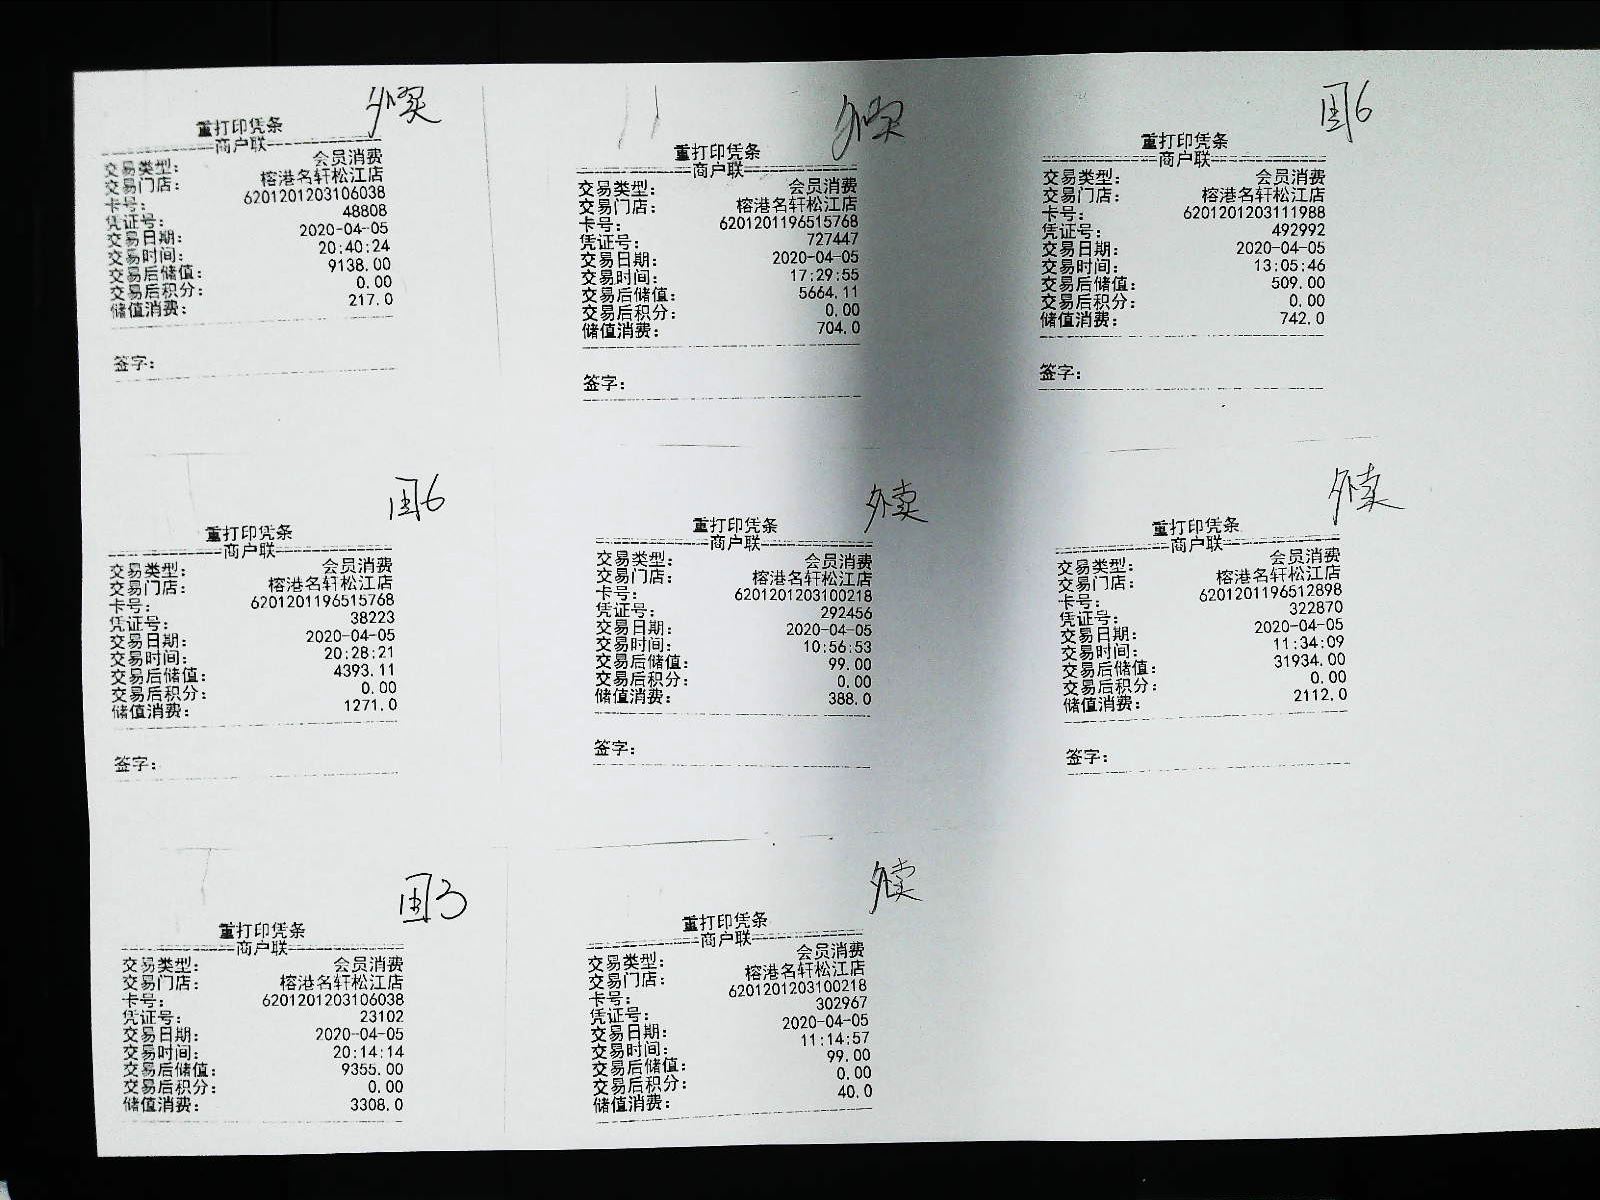 外卖
重打印凭条
商户联
交易类型： 会员消费
交易门店： 榕港名轩松江店
卡号： 6201201203106038
凭证号： 48808
交易日期： 2020-04-05
交易时间： 20:40:24
交易后储值： 9138.00
交易后积分： 0.00
储值消费： 217.0
签字：
外卖
重打印凭条
商户联
交易类型： 会员消费
交易门店： 榕港名轩松江店
卡号： 6201201196515768
凭证号： 727447
交易日期： 2020-04-05
交易时间： 17:29:55
交易后储值： 5664.11
交易后积分： 0.00
储值消费： 704.0
签字：
国6
重打印凭条
商户联
交易类型： 会员消费
交易门店： 榕港名轩松江店
卡号： 6201201203111988
凭证号： 492992
交易日期： 2020-04-05
交易时间： 13:05:46
交易后储值： 509.00
交易后积分： 0.00
储值消费： 742.0
签字：
国6
重打印凭条
商户联
交易类型： 会员消费
交易门店： 榕港名轩松江店
卡号： 6201201196515768
凭证号： 38223
交易日期： 2020-04-05
交易时间： 20:28:21
交易后储值： 4393.11
交易后积分： 0.00
储值消费： 1271.0
签字：
外卖
重打印凭条
商户联
交易类型： 会员消费
交易门店： 榕港名轩松江店
卡号： 6201201203100218
凭证号： 292456
交易日期： 2020-04-05
交易时间： 10:56:53
交易后储值： 99.00
交易后积分： 0.00
储值消费： 388.0
签字：
外卖
重打印凭条
商户联
交易类型： 会员消费
交易门店： 榕港名轩松江店
卡号： 6201201196512898
凭证号： 322870
交易日期： 2020-04-05
交易时间： 11:34:09
交易后储值： 31934.00
交易后积分： 0.00
储值消费： 2112.0
签字：
国3
重打印凭条
商户联
交易类型： 会员消费
交易门店： 榕港名轩松江店
卡号： 6201201203106038
凭证号： 23102
交易日期： 2020-04-05
交易时间： 20:14:14
交易后储值： 9355.00
交易后积分： 0.00
储值消费： 3308.0
外卖
重打印凭条
商户联
交易类型： 会员消费
交易门店： 榕港名轩松江店
卡号： 6201201203100218
凭证号： 302967
交易日期： 2020-04-05
交易时间： 11:14:57
交易后储值： 99.00
交易后积分： 0.00
储值消费： 40.0